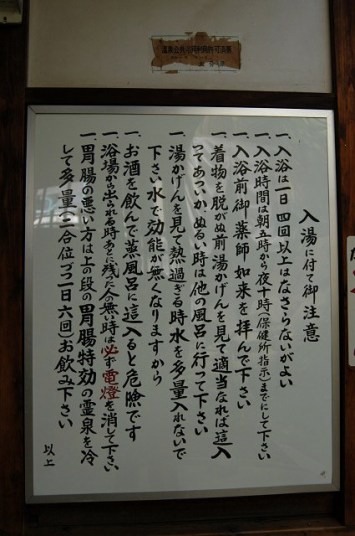 入湯に付て御注意
一、入浴は一日四回以上はなさらないがよい
一、入浴時間は朝五時から夜十時(保健所指示)までにして下さい
一、入浴前御薬師如来を拝んで下さい
一、着物を脱がぬ前湯かげんを見て適当なれば這入
ってあついかぬるい時は他の風呂に行って下さい
一、湯かげんを見て熱過ぎる時水を多量入れないで
下さい水で効能が無くなりますから
一、お酒を飲んで蒸風呂に這入ると危険です
一、浴場から出られる時あとに残った人の無い時は必ず電燈を消して下さい
一、胃腸の悪い方は上の段の胃腸特効の霊泉を冷
して多量(二合位づつ一日六回)お飲み下さい
以上